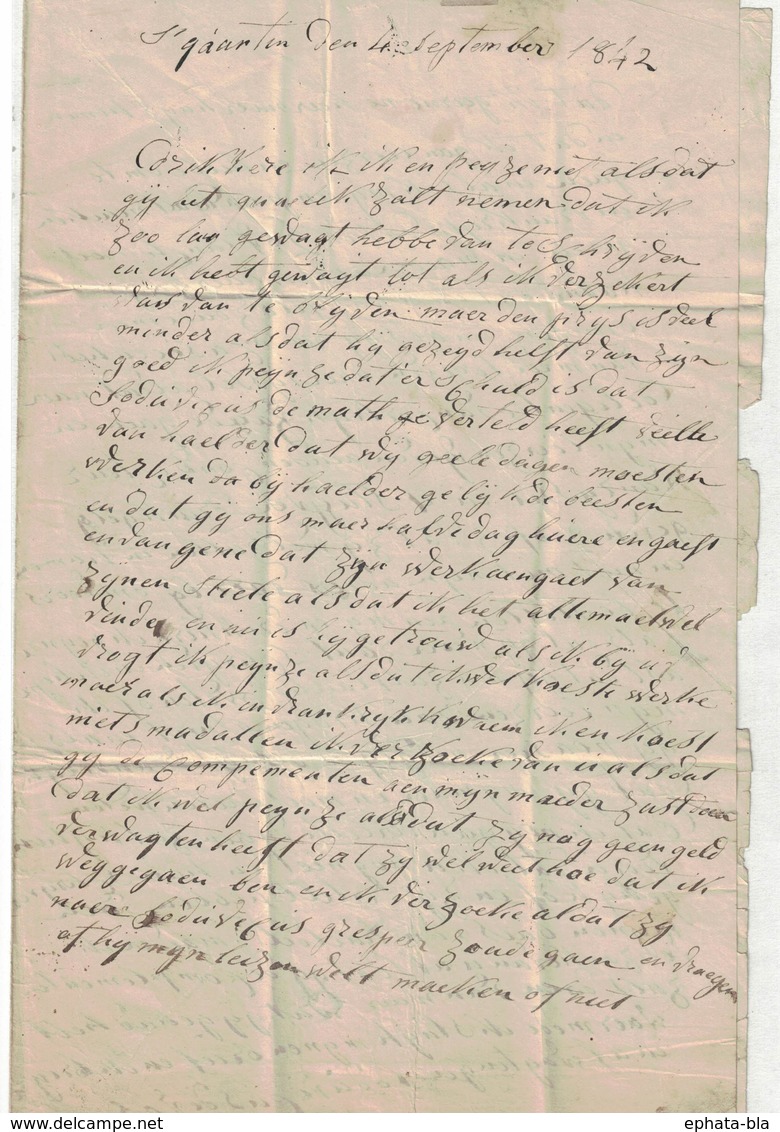 St qaantin den 4 september 1842
ik en peyze niet als dat
gij het quaelk zalt nemen dat ik
zoo lan gewagt hebbe van te schryven
en ik hebt gewagt tot als ik verzekert
was van te blyven maer den prys is veel
minder als dat hij gezeyd helft van zyn
goed ik peynze dat er schuld is dat
Lodivicus de math ge verteld heeft
van haelder dat wij geele dagen moesten
werken da bij haelder gelijk de beesten
en dat gij ons maer hafve dag huere en gaeft
en van gene dat zyn werk aengaet van
zynen stiele als dat ik het altemael wel
vinde en nu is hij getrouwd als ik bij uf
vrogt ik peynze als dat ik wel koeste werke
maer als ik in vrankryk kwaem ik en koest
niets madallen ik verzoeke van u als dat
gij de Compementen aen myn moeder zult doen
dat ik wel peynze als dat zy nog geen geld
verwagten heeft dat zy wel weet hoe dat ik
weggegaen ben en ik verzoeke al dat zy
naer Lodivicus gresper zoude gaen en draegen
of hy myn leizen welt maeken of niet
ephata-bla
www.delcampe.net